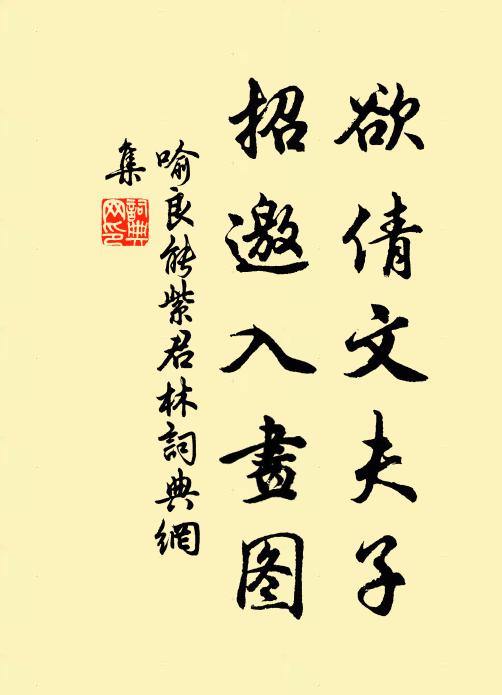 欲倩文夫子
招邀入畫图
喻良能紫君林詞典網
集
詞典网印